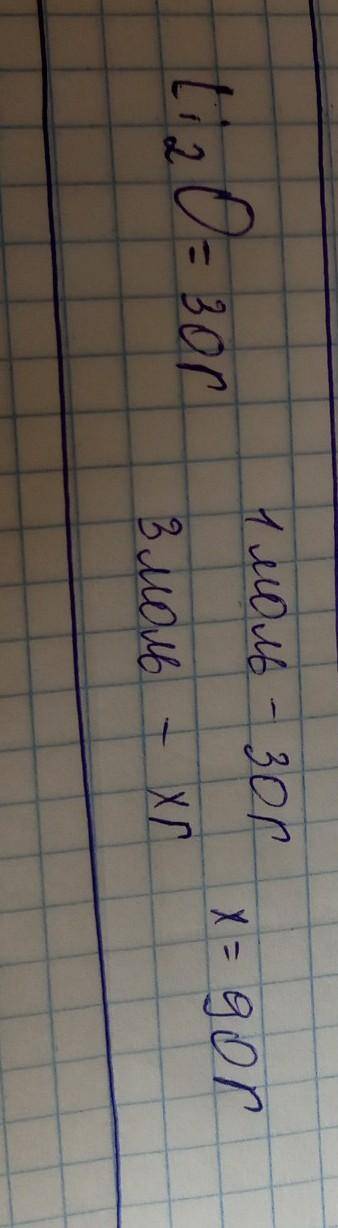 Li₂O = 30г
1 моль - 30г
3 моль - хг
х = 90г